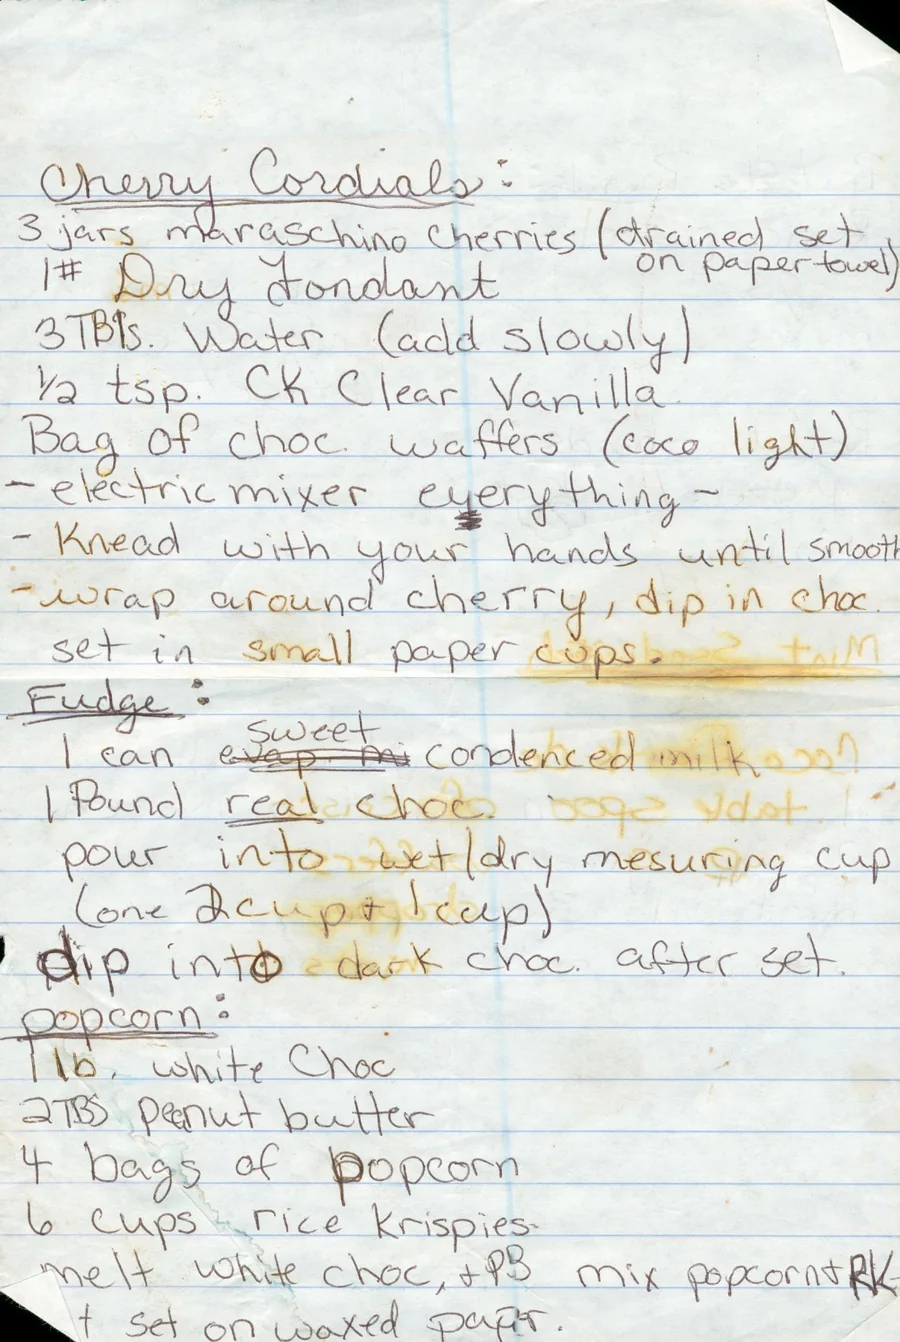 Cherry Cordials:
3 jars maraschino cherries (drained set
on paper towel)
1# Dry Fondant
3 TBls. Water (add slowly)
1/2 tsp. CK Clear Vanilla
Bag of choc. waffers (coco light)
- electric mixer everything -
- Knead with your hands until smooth
- wrap around cherry, dip in choc.
set in small paper cups.
Fudge:
sweet
1 can condenced milk
1 Pound real choc.
pour into wet/dry mesuring cup
(one 2cup + 1cup)
dip into dark choc. after set.
popcorn:
1 lb. white Choc
2TBS Peanut butter
4 bags of popcorn
6 cups rice krispies
melt white choc, + PB mix popcorn + RK
+ set on waxed paper.